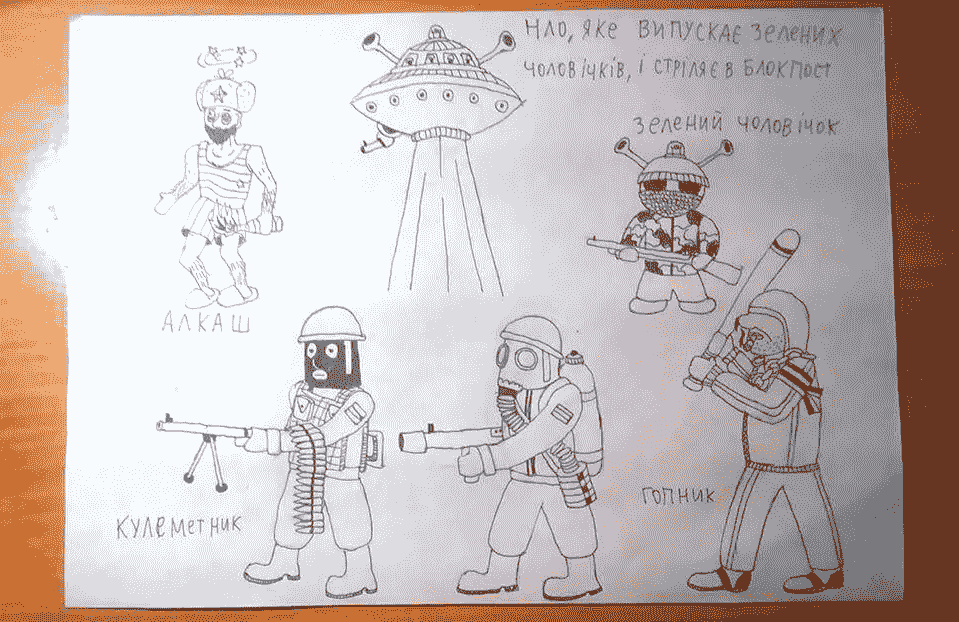 НЛО, ЯКЕ ВИПУСКАЄ ЗЕЛЕНИХ
ЧОЛОВІЧКІВ, І СТРІЛЯЄ В БЛОКПОСТ
ЗЕЛЕНИЙ ЧОЛОВІЧОК
АЛКАШ
КУЛЕМЕТНИК
ГОПНИК